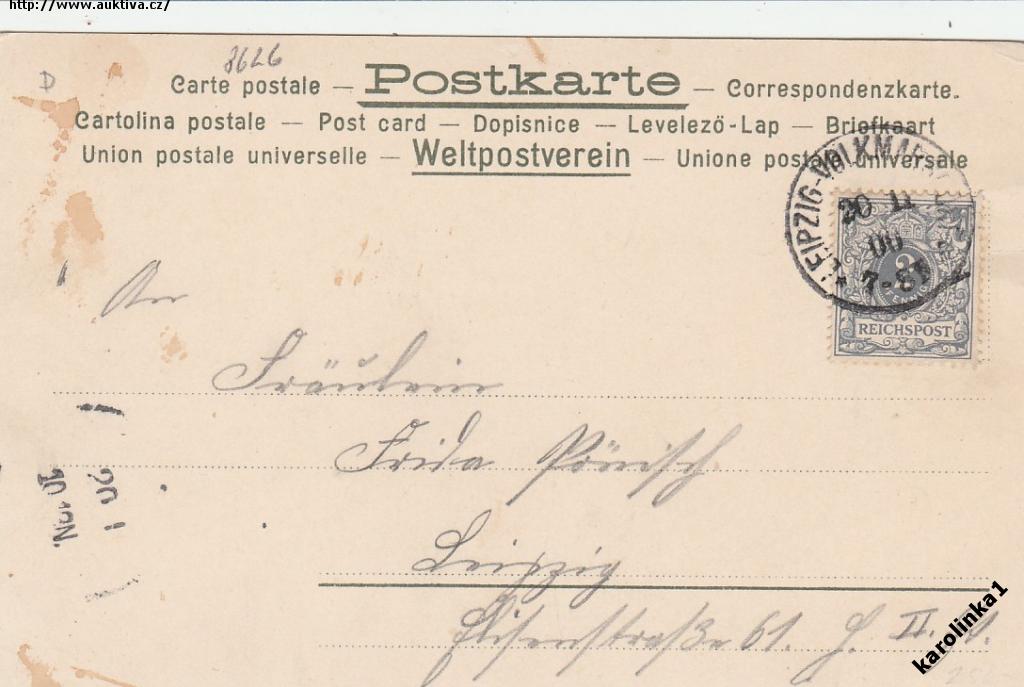 http://www.auktiva.cz/
8626
D
Carte postale — Postkarte — Correspondenzkarte.
Cartolina postale — Post card — Dopisnice — Levelező-Lap — Briefkaart
Union postale universelle — Weltpostverein — Unione postale universale
LEIPZIG-VOLKMARSDORF
20 11
00
7-8N
3
REICHSPOST
An
Fräulein
Frida Pönisch
Leipzig
Elisenstraße 61. H. II. r.
20
10-12N.
karolinka1